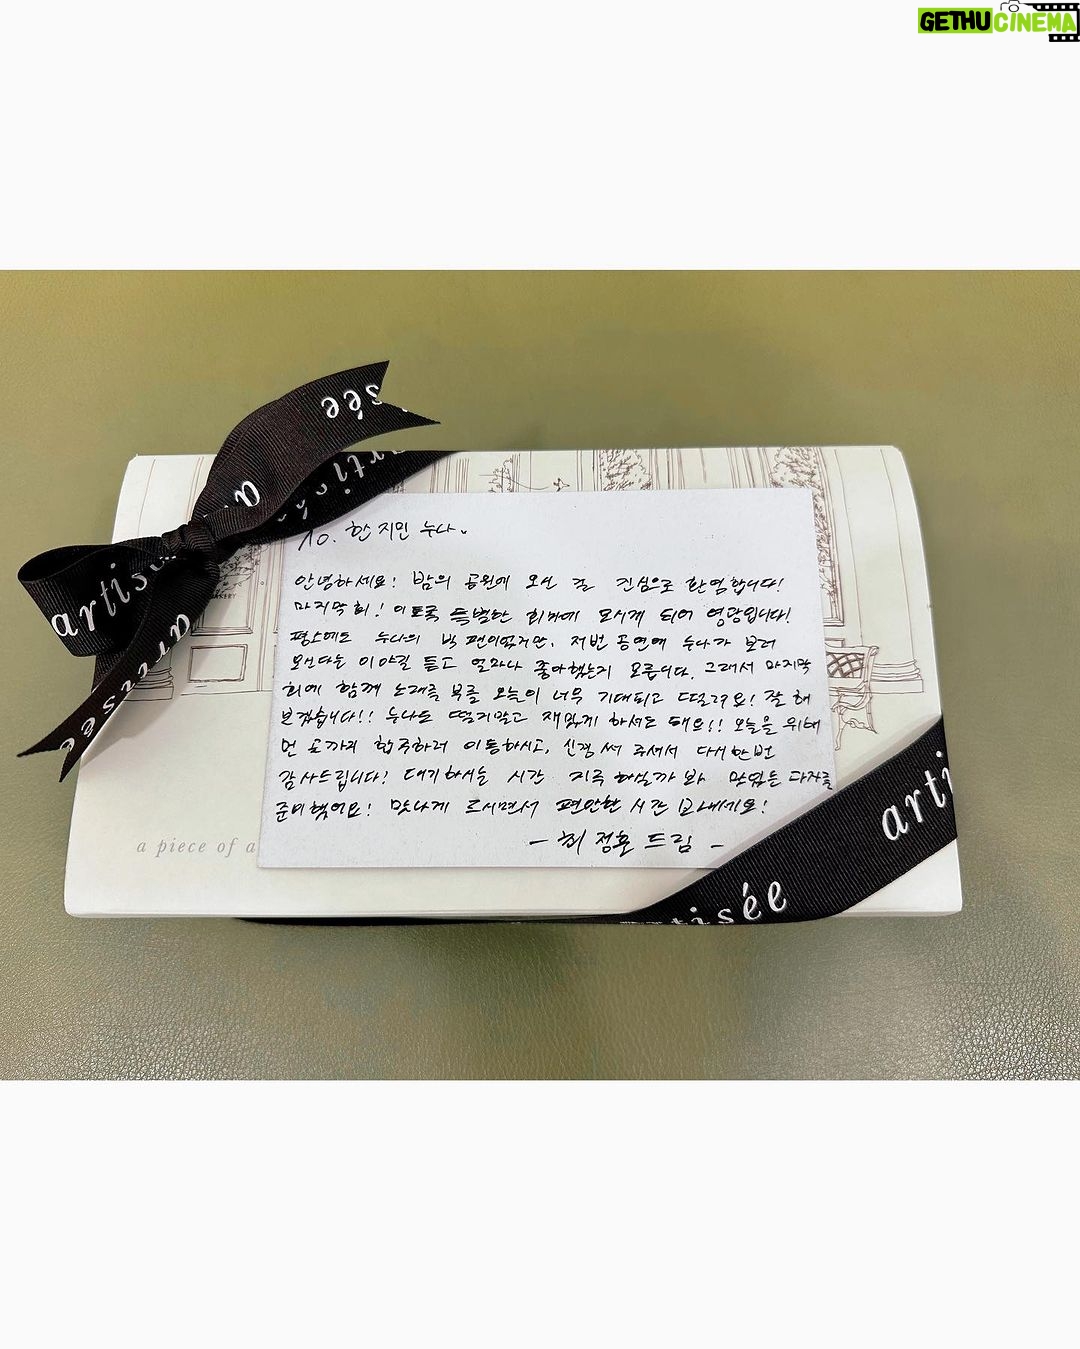 GETHUCINEMA
artisée
artisée
To. 한지민 누나.
안녕하세요! 밤의 공원에 오신 걸 진심으로 환영합니다!
마지막회! 이토록 특별한 회차에 모시게 되어 영광입니다!
평소에도 누나의 빅 팬이었지만, 저번 공연에 누나가 보러
오신다는 이야길 듣고 얼마나 좋아했는지 모릅니다. 그래서 마지막
회에 함께 노래를 부를 오늘이 너무 기대되고 떨려요! 잘 해
보겠습니다!! 누나도 떨지말고 재밌게 하셔도 돼요!! 오늘을 위해
먼 곳까지 합주하러 이동하시고, 신경 써 주셔서 다시한번
감사드립니다! 대기하시는 시간 지루하실까 봐 맛있는 과자를
준비했어요! 맛나게 드시면서 편안한 시간 보내세요!
- 최정훈 드림 -
a piece of a
artisée